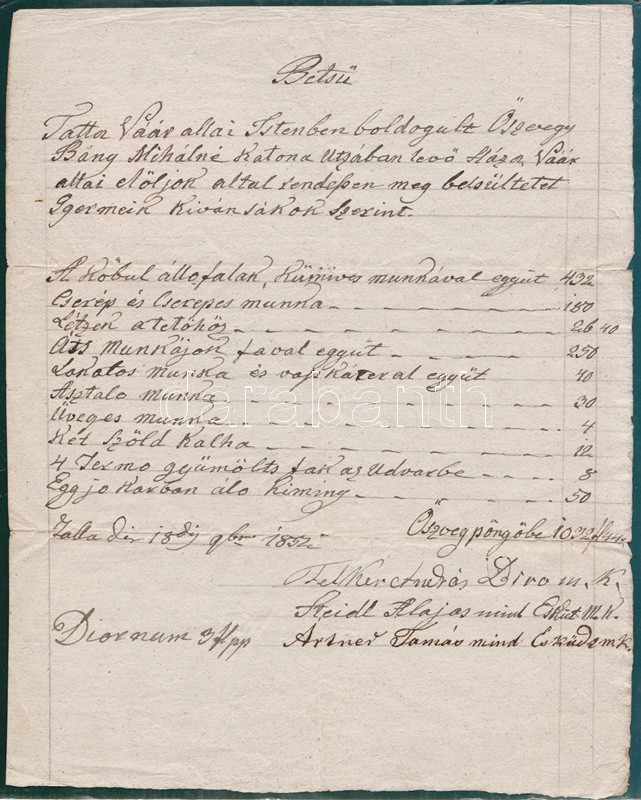 Betsü
Tatta Vaár allai Istenben boldogult Öszvegy
Bány Mihálné Katona Utzában levö Háza, Vaár
allai elöljok által rendessen meg betsültetet
Ggermeik Kiván sákok Szerint.
A Köbul álló falak, Kümives munkával együt 432
Cserép és Cserepes munka 180
Létzek a tetöhös 26 40
Áts Munkájok faval együt 250
Lakatos munka és vass Kazeral együt 40
Asztalo munka 30
Üveges munka 4
Két Szöld Kalha 12
4 Termo gyümölts fak az Udvarbe 8
Eggjo Karban álo Kiminy 50
Öszveg pöngöbe 1032 f 40
Tatta die 18 dij 9ber 1852
Felker András Biro m. K.
Steidl Alajos mind Esküt M. K.
Diornum 3 f pp
Artner Tamás mind Esküdt m. K.
darabanth